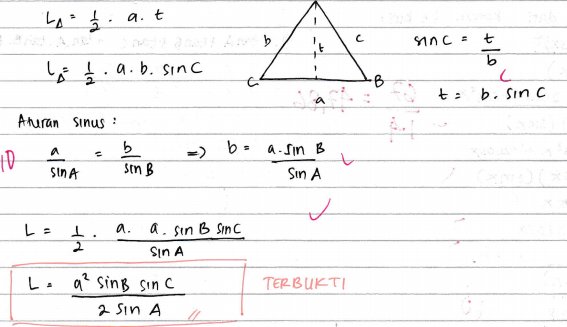 L△ = 1/2 . a . t
L△ = 1/2 . a . b . sin C
b
c
t
C
B
a
sin C = t/b
t = b . sin C
Aturan sinus :
10
a/sin A = b/sin B => b = a . sin B/sin A
L = 1/2 . a . a . sin B sin C/sin A
L = a² sin B sin C/2 sin A
TERBUKTI